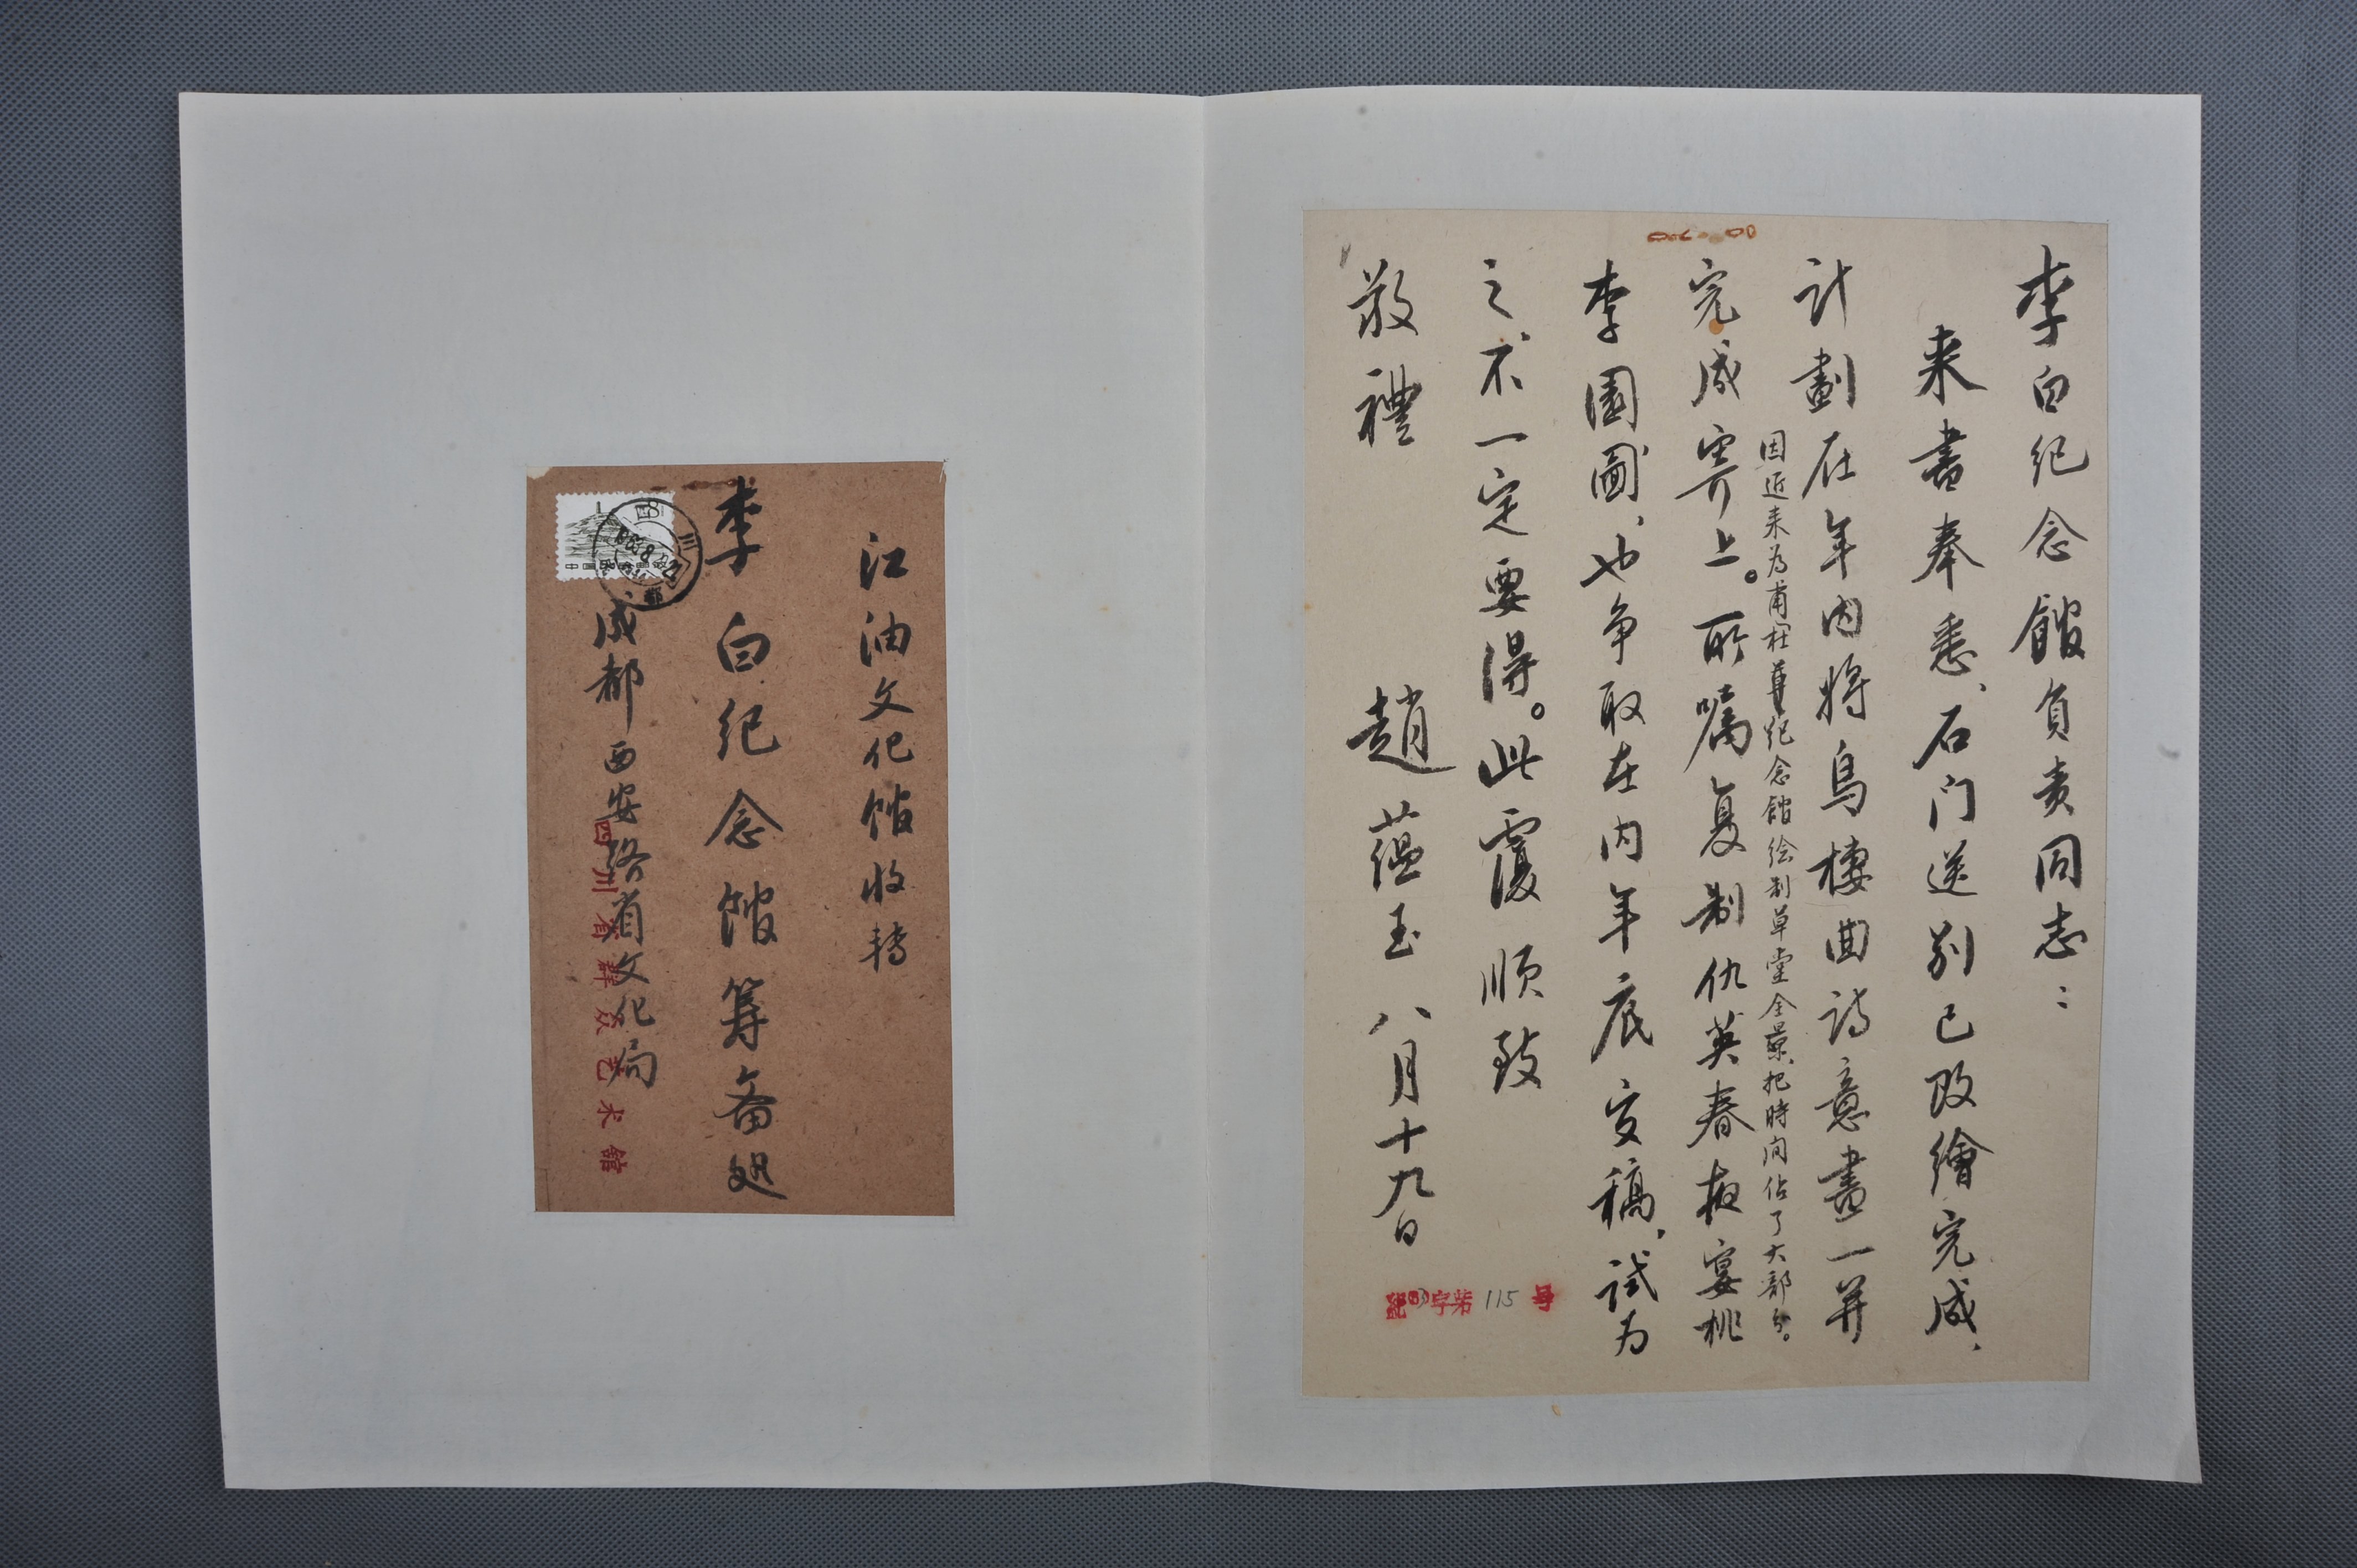 李白纪念館負责同志：
来書奉悉、石门送别已改繪完成、
计劃在年内将烏棲曲诗意畫一并
因近来为甫
纪念館绘制草堂全景把時间佔了大部分。
完成寄上。所嘱复制仇英春夜宴桃
李園圖、也争取在内年底交稿、试为
之、不一定要得。此覆顺致
敬禮
趙蕴玉 八月十九日
字第115号
江油文化馆收转
李白纪念馆筹备処
成都西安路省文化局
四川省群众艺术館